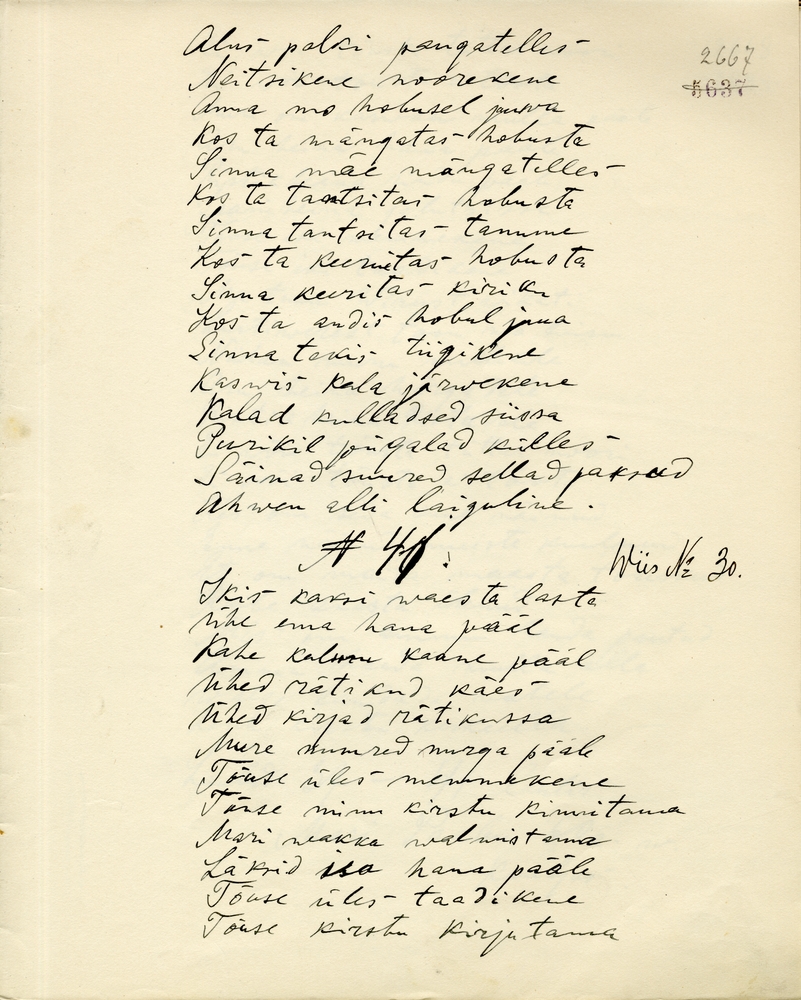 2667
5637
Alus palki pangatelles
Neitsikene noorekene
Anna mo hobusel juwa
Kos ta mängatas hobusta
Sinna mäe mängatelles
Kos ta tantsitas hobusta
Sinna tantsitas tanume
Kos ta keeritas hobusta
Sinna keeritas kiriku
Kos ta andis hobul juua
Sinna tekis tiigikene
Kaswis kala järwekene
Kalad kulladsed siissa
Purikil pügalad külles
Säinad suured sellad paksud
Ahwen alli laiguline.
Wiis № 30.
Ikis kaksi waesta lasta
Ühe ema haua pääl
Kahe kalmu kaane pääl
Ühed rätikud käes
Ühed kirjad rätikussa
Mure muured nurga pääle
Tõuse üles memmekene
Tõuse minu kirstu kinnitama
Mari wakka walmistama
Läksid isa haua pääle
Tõuse üles taadikene
Tõuse kirstu kirjutama